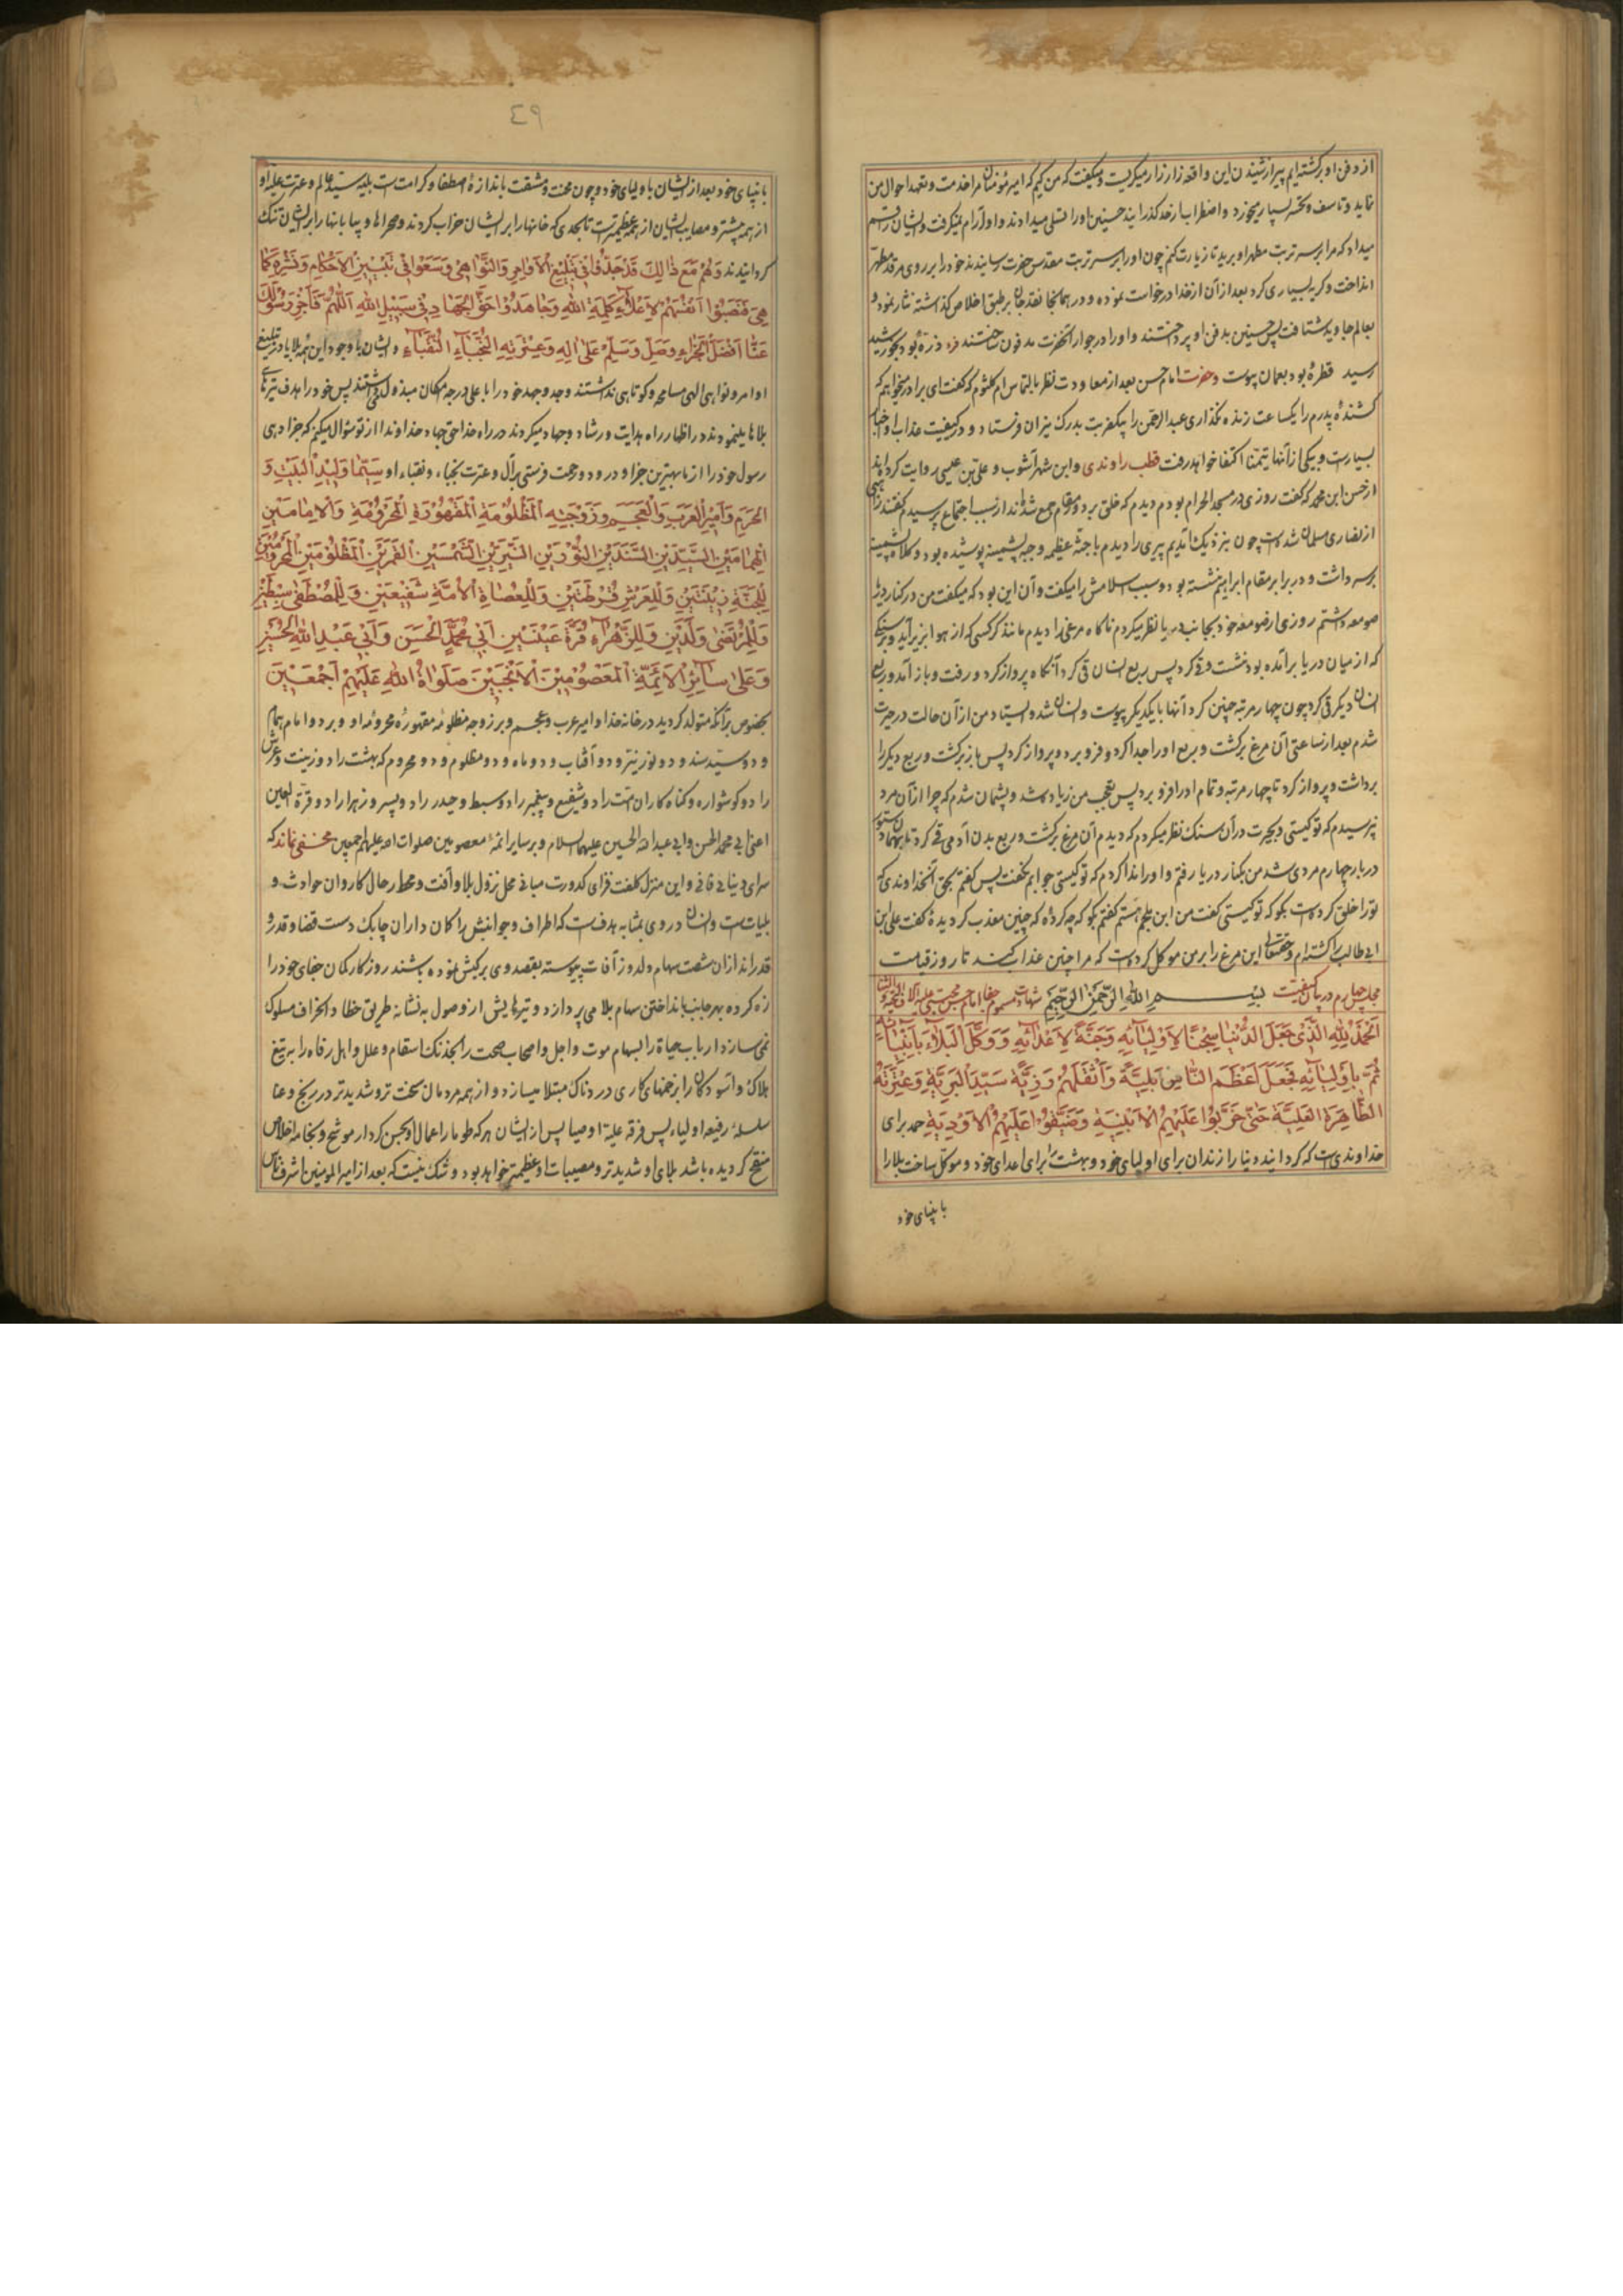 از دفن او برگشته‌ایم پیر از شنیدن این واقعه زار زار میگریست و میگفت که من کیم که امیر مؤمنان مرا خدمت و تعهد احوال من
نماید و تاسف و تحسر بسیار میخورد و اضطراب از حد گذرانید حسنین او را تسلی میدادند و او آرام نمیگرفت و ایشان را قسم
میداد که مرا بر سر تربت مطهر او برید تا زیارت کنم چون او را بر سر تربت مقدس حضرت رسانیدند خود را بر روی مرقد مطهر
انداخت و گریه بسیاری کرد بعد از آن از خدا درخواست نموده و در همانجا نقد جان بر طبق اخلاص گذاشته نثار نمود و
بعالم جاوید شتافت پس حسنین بدفن او پرداختند و او را در جوار آنحضرت مدفون ساختند فرد ذرهٔ بود بخورشید
رسید قطرهٔ بود بعمان پیوست وحضرت امام حسن بعد از معاودت نظر بالتماس ام کلثوم که گفت ای برادر میخواهم که
کشندهٔ پدرم را یکساعت زنده نگذاری عبد الرحمن را بیکضربت بدرک نیران فرستاد و در کیفیت عذاب او اخبار
بسیارست و بیکی از آنها تیمنا اکتفا خواهد رفت قطب راوندی و ابن شهرآشوب و علی بن عیسی روایت کرده‌اند
از حسن ابن محمد که گفت روزی در مسجد الحرام بودم دیدم که خلقی بر دور مقام جمع شده‌اند از سبب اجتماع پرسیدم گفتند راهبی
از نصاری مسلمان شده است چون نزدیک شدیم پیری را دیدم با جثهٔ عظیم و جبه پشمینه پوشیده بود و کلاه پشمینه
بر سر داشت و در برابر مقام ابراهیم نشسته بود و سبب اسلامش را میگفت و آن این بود که میگفت من در کنار دریا
صومعه داشتم روزی از صومعه خود بجانب دریا نظر میکردم ناگاه مرغی را دیدم مانند کرکسی که از هوا بزیر آمد و بر سنگی
که از میان دریا برآمده بود نشست و قی کرد پس ربع انسان قی کرد آنگاه پرواز کرد و رفت و باز آمد و ربع
انسان دیگر قی کرد چون چهار مرتبه چنین کرد آنها با یکدیگر پیوست و انسان شد و ایستاد من از آن حالت در حیرت
شدم بعد از ساعتی آن مرغ برگشت و ربع او را جدا کرد و فرو برد و پرواز کرد پس باز برگشت و ربع دیگر را
برداشت و پرواز کرد تا چهار مرتبه و تمام او را فرو برد پس تعجب من زیاده شد و پشمان شدم که چرا از آن مرد
نپرسیدم که تو کیستی و بحیرت در آن سنک نظر میکردم که دیدم آن مرغ برگشت و ربع بدن آدمی قی کرد تا بهمان دستور
در بار چهارم مردی شد من بکنار دریا رفتم و او را ندا کردم که تو کیستی جوابم نگفت پس گفتم بحق آنخداوندی که
تو را خلق کرده است بگو که تو کیستی گفت من ابن ملجم هستم گفتم بگو که چه کردهٔ که چنین معذب گردیدهٔ گفت علی ابن
ابی طالب را کشته‌ام و حقتعالی این مرغ را بر من موکل کرده است که مرا چنین عذاب کند تا روز قیامت
مجلس چهارم در بیان کیفیت بِسْمِ اللهِ الرَّحْمٰنِ الرَّحِیْمِ شهادت مسموم جفا امام حسن مجتبی علیه
اَلْحَمْدُ لِلّٰهِ الَّذِیْ جَعَلَ الدُّنْیَا سِجْنًا لِاَوْلِیَائِهِ وَجَنَّةً لِاَعْدَائِهِ وَوَکَّلَ الْبَلَاءَ بِاَنْبِیَائِهِ
ثُمَّ بِاَوْلِیَائِهِ فَجَعَلَ اَعْظَمَ النَّاسِ بَلِیَّةً وَاَثْقَلَهُمْ رَزِیَّةً سَیِّدَ الْبَرِیَّةِ وَعِتْرَتَهُ
الطَّاهِرَةَ الْعَلِیَّةَ حَتّٰی خَرَّبُوْا عَلَیْهِمُ الْاَبْنِیَةَ وَضَیَّقُوْا عَلَیْهِمُ الْاَوْدِیَةَ حمد برای
خداوندی است که گردانید دنیا را زندان برای اولیای خود و بهشت برای اعدای خود و موکل ساخت بلا را
بانبیای خود
٤٩
بانبیای خود بعد از ایشان باولیای خود و چون محنت و مشقت باندازهٔ اصطفا و کرامت است بلیه سید عالم و عترت علیه او
از همه بیشتر و مصایب ایشان از همه عظیمترست تا بحدی که خانها را بر ایشان خراب کردند و صحراها و بیابانها را بر ایشان تنک
گردانیدند وَلَهُمْ مَعَ ذٰلِکَ قَدْ جَدُّوْا فِیْ تَبْلِیْغِ الْاَوَامِرِ وَالنَّوَاهِیْ وَسَعَوْا فِیْ تَبْیِیْنِ الْاَحْکَامِ وَنَشْرِهِ کَمَا
هِیَ فَنَصَبُوْا اَنْفُسَهُمْ لِاِعْلَاءِ کَلِمَةِ اللهِ وَجَاهَدُوْا حَقَّ الْجِهَادِ فِیْ سَبِیْلِ اللهِ اَللّٰهُمَّ فَاَجْزِ رَسُوْلَکَ
عَنَّا اَفْضَلَ الْجَزَاءِ وَصَلِّ وَسَلِّمْ عَلٰی اٰلِهِ وَعِتْرَتِهِ النُّجَبَاءِ النُّقَبَاءِ و ایشان با وجود این همه بلایا در تبلیغ
اوامر و نواهی الهی مسامحه و کوتاهی نداشتند و جد و جهد خود را با علی درجه امکان مبذول میداشتند پس خود را هدف تیرهای
بلاها مینمودند در اظهار راه هدایت و رشاد و جهاد میکردند در راه خدا حق جهاد خداوندا از تو سئوال میکنم که جزا دهی
رسول خود را از ما بهترین جزا و درود و رحمت فرستی بر آل و عترت نجباء و نقباء او سِیَّمَا وَلِیْدِ الْبَیْتِ وَ
الْحَرَمِ وَاَمِیْرِ الْعَرَبِ وَالْعَجَمِ وَزَوْجَتِهِ الْمَظْلُوْمَةِ الْمَقْهُوْرَةِ الْمَحْرُوْمَةِ وَالْاِمَامَیْنِ
الْهُمَامَیْنِ السَّیِّدَیْنِ السَّنَدَیْنِ النُّوْرَیْنِ النَّیِّرَیْنِ الشَّمْسَیْنِ الْقَمَرَیْنِ الْمَظْلُوْمَیْنِ الْمَحْرُوْمَیْنِ
لِلْجَنَّةِ زِیْنَتَیْنِ وَلِلْعَرْشِ قُرْطَتَیْنِ وَلِلْعُصَاةِ الْاُمَّةِ شَفِیْعَیْنِ وَلِلْمُصْطَفٰی سِبْطَیْنِ
وَلِلْمُرْتَضٰی وَلَدَیْنِ وَلِلزَّهْرَاءِ قُرَّةَ عَیْنَیْنِ اَبِیْ مُحَمَّدٍ الْحَسَنِ وَاَبِیْ عَبْدِ اللهِ الْحُسَیْنِ
وَعَلٰی سَائِرِ الْاَئِمَّةِ الْمَعْصُوْمِیْنَ الْاَنْجَبِیْنَ صَلَوَاةُ اللهِ عَلَیْهِمْ اَجْمَعِیْنَ
بخصوص بر آنکه متولد گردید در خانه خدا و امیر عرب و عجم و بر زوجه مظلومه مقهوره محرومه او و بر دو امام همام
و دو سید سند و دو نور نیر و دو آفتاب و دو ماه و دو مظلوم و دو محروم که بهشت را دو زینت و عرش
را دو گوشواره و گناه کاران امت را دو شفیع و پیغمبر را دو سبط و حیدر را دو پسر و زهرا را دو قرة العین
اعنی ابی محمد الحسن و ابی عبد الله الحسین علیهما السلام و بر سایر ائمهٔ معصومین صلوات الله علیهم اجمعین مخفی نماند که
سرای دنیای فانی و این منزل کلفت فزای کدورت مبانی محل نزول بلا و آفت و محط رحال کاروان حوادث و
بلیات است و انسان در وی بمثابه هدفست که اطراف و جوانبش را کمان داران چابک دست قضا و قدر و
قدر اندازان شصت سهام ولدوز آفات پیوسته بقصد وی برکیش نموده باشند روزگار کمان جفای خود را
زه کرده بهر جانب بانداختن سهام بلا می‌پردازد و تیرهایش از وصول به نشانه طریق خطا و انحراف مسلوک
نمی‌سازد ارباب حیاة را بسهام موت و اجل و اصحاب صحت را بخدنک اسقام و علل و اهل رفاه را به تیغ
هلاک و آسودگان را بزخمهای کاری دردناک مبتلا میسازد و از همه مردمان سخت‌تر و شدیدتر در رنج و عنا
سلسلهٔ رفیعه اولیاء پس فرقه علیهٔ اوصیا پس از ایشان هر که طومار اعمال او بحسن کردار موشح و بخامه اخلاص
منقح گردیده باشد بلای او شدیدتر و مصیبات او عظیمتر خواهد بود و شک نیست که بعد از امیر المومنین اشرف ناس